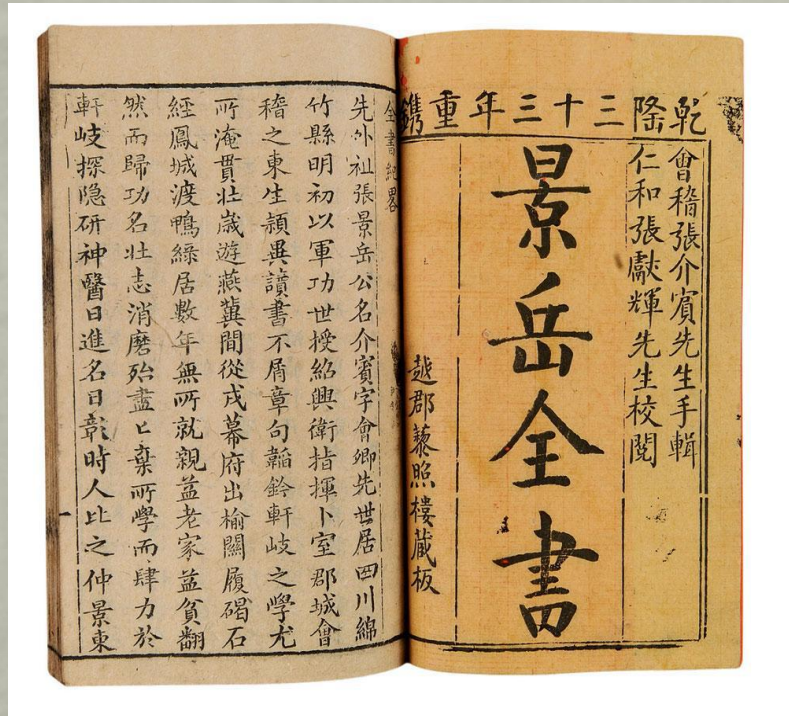 乾隆三十三年重鐫
會稽張介賓先生手輯
仁和張獻輝先生校閱
景岳全書
越郡藜照樓藏板
全書紀畧
先外祖張景岳公名介賓字會卿先世居四川綿
竹縣明初以軍功世授紹興衛指揮卜室郡城會
稽之東生頴異讀書不屑章句韜鈐軒岐之學尤
所淹貫壯歲遊燕冀間從戎幕府出榆關履碣石
經鳳城渡鴨綠居數年無所就親益老家益貧翻
然而歸功名壯志消磨殆盡匕棄所學而肆力於
軒岐探隐研神醫日進名日彰時人比之仲景東